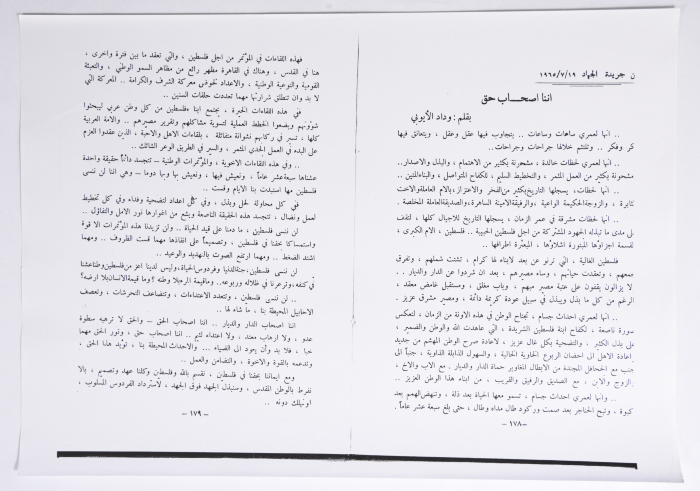 ن جريدة الجهاد ١٩٦٥/٧/١٩
اننا اصحـــاب حق
بقلم : وداد الأيوبي
.. انها لعمري ساعات وساعات .. يتجاوب فيها عقل وعقل ، ويتعانق فيها
كر وفكر .. وتلتئم خلالها جراحات وجراحات ..
.. انها لعمري لحظات خالدة ، مشحونة بكثير من الاهتمام ، والبذل والاصدار..
مشحونة بكثير من العمل المثمر ، والتخطيط السليم ، للكفاح المتواصل ، والبناء المتين ..
.. انها لحظات، يسجلها التاريخ بكثير من الفخر والاعتزاز بالام العاملة والاخت
ثابرة ، والزوجة الحكيمة الواعية ، والرفيقة الامينة الساهرة ، والصديقة العاملة المخلصة .
.. انها لحظات مشرقة في عمر الزمان ، يسجلها التاريخ للاجيال كلها ، لتقف
لى مدى ما تبذله الجهود المشتركة من اجل فلسطين الحبيبة .. فلسطين ، الام الكبرى ،
لقسمة اجزاؤها المبتورة اشلاؤها ، المبعثرة اطرافها ..
فلسطين الغالية ، التي ترنو عن بعد لابناء لها كرام ، تشتت شملهم ، وتفرق
معهم ، وتعقدت حياتهم ، وساء مصيرهم ، بعد ان شردوا عن الدار والديار ..
لا يزالون يقفون على عتبة مصير مبهم ، وباب مغلق ، ومستقبل غامض معقد ،
الرغم من كل ما بذل ويبذل في سبيل عودة كريمة دائمة ، ومصير مشرق عزيز .
.. انها لعمري احداث جسام ، تجتاح الوطن في هذه الاونة من الزمان ، لتعكس
سورة ناصعة ، لكفاح ابنة فلسطين الشريدة ، التي عاهدت الله والوطن والضمير ،
على بذل الكثير ، والتضحية بكل غال عزيز ، لاعادة صرح الوطن المهشم من جديد
إعادة الاهل الى احضان الربوع الخاوية الخالية ، والسهول الذابلة الذاوية ، جنباً الى
جنب مع الجحافل المجندة من الابطال المغاوير حماة الدار والديار ، مع الاب والاخ ،
الزوج والابن ، مع الصديق والرفيق والقريب ، من ابناء هذا الوطن العزيز ..
.. وانها لعمري احداث جسام ، تسمو معها الحياة بعد ذلة ، وتنهض الهمم بعد
كبوة ، وتبح الحناجر بعد صمت وركود طال مداه وطال ، حتى بلغ سبعة عشر عاماً .
— ١٧٨ —
فهذه اللقاءات في المؤتمر من اجل فلسطين ، والتي تعقد ما بين فترة واخرى ،
هنا في القدس ، وهناك في القاهرة مظهر رائع من مظاهر السمو الوطني ، والتعبئة
القومية والتوعية الوطنية ، والاعداد لخوض معركة الشرف والكرامة .. المعركة التي
لا بد وان تنطلق شرارتها مهما تعددت حلقات السنين ..
ففي هذه اللقاءات الخيرة ، يجتمع ابناء فلسطين من كل وطن عربي ليبحثوا
شؤونهم ويضعوا الخطط العملية لتسوية مشاكلهم وتقرير مصيرهم .. والامة العربية
كلها ، تسير في ركابهم نشوانة متفائلة ، بلقاءات الاهل والاحبة ، الذين عقدوا العزم
على البدء في العمل الجدي المثمر ، والسير في الطريق الوعر الشائك ..
.. وفي هذه اللقاءات الاخوية ، والمؤتمرات الوطنية — تتجسد دائماً حقيقة واحدة
عشناها سبعة عشر عاماً ، ونعيش فيها ، ونعيش بها وبها دوما — وهي اننا لن ننسى
فلسطين مها استبدت بنا الايام وقست ..
في كل محاولة لحل وبذل ، وفي كل اعداد لتضحية وفداء وفي كل تخطيط
لعمل ونضال ، تتجسد هذه الحقيقة الناصعة ويشع من اغوارها نور الامل والتفاؤل ..
لن ننسى فلسطين ، ما دمنا على قيد الحياة .. ولن تزيدنا هذه المؤتمرات الا قوة
واستمساكا بحقنا في فلسطين ، وتصميماً على انقاذها مهما قست الظروف .. ومهما
اشتد الضغط .. ومهما ارتفع الصوت بالتهديد والوعيد ..
لن ننسى فلسطين، جنة الدنيا وفردوس الحياة، وليس لدينا اعز من فلسطين وطنا عشنا
في كنفه، وترعرعنا في ظلاله وربوعه.. وما قيمة الرجل بلا وطنه ؟ وما قيمة الانسان بلا ارضه ؟
.. لن ننسى فلسطين ، وتتعدد الاعتداءات ، وتتضاعف التحرشات ، وتعصف
الاحابيل المحيطة بنا ، ما شاء لها ..
اننا اصحاب الدار والديار .. اننا اصحاب الحق — والحق لا ترهبه سطوة
عدو ، ولا ارهاب معتد ، ولا اعتداء لئيم .. اننا اصحاب حق ، ونور الحق مهما
خبا ، فلا بد وأن يعود الى الضياء ... والاحداث المحيطة بنا ، تؤيد هذا الحق ،
وتدعمه بالقوة والاخوة ، والتضامن والعمل ..
ومع ايماننا بحقنا في فلسطين ، نقسم بالله وفلسطين وكلنا عهد وتصميم ، بالا
نفرط بالوطن المقدس ، وسنبذل الجهد فوق الجهد ، لاسترداد الفردوس المسلوب ،
اونهلك دونه ..
— ١٧٩ —